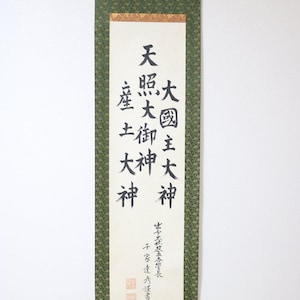 大國主大神
天照大御神
産土大神
出雲大社教管長
千家達彦謹書